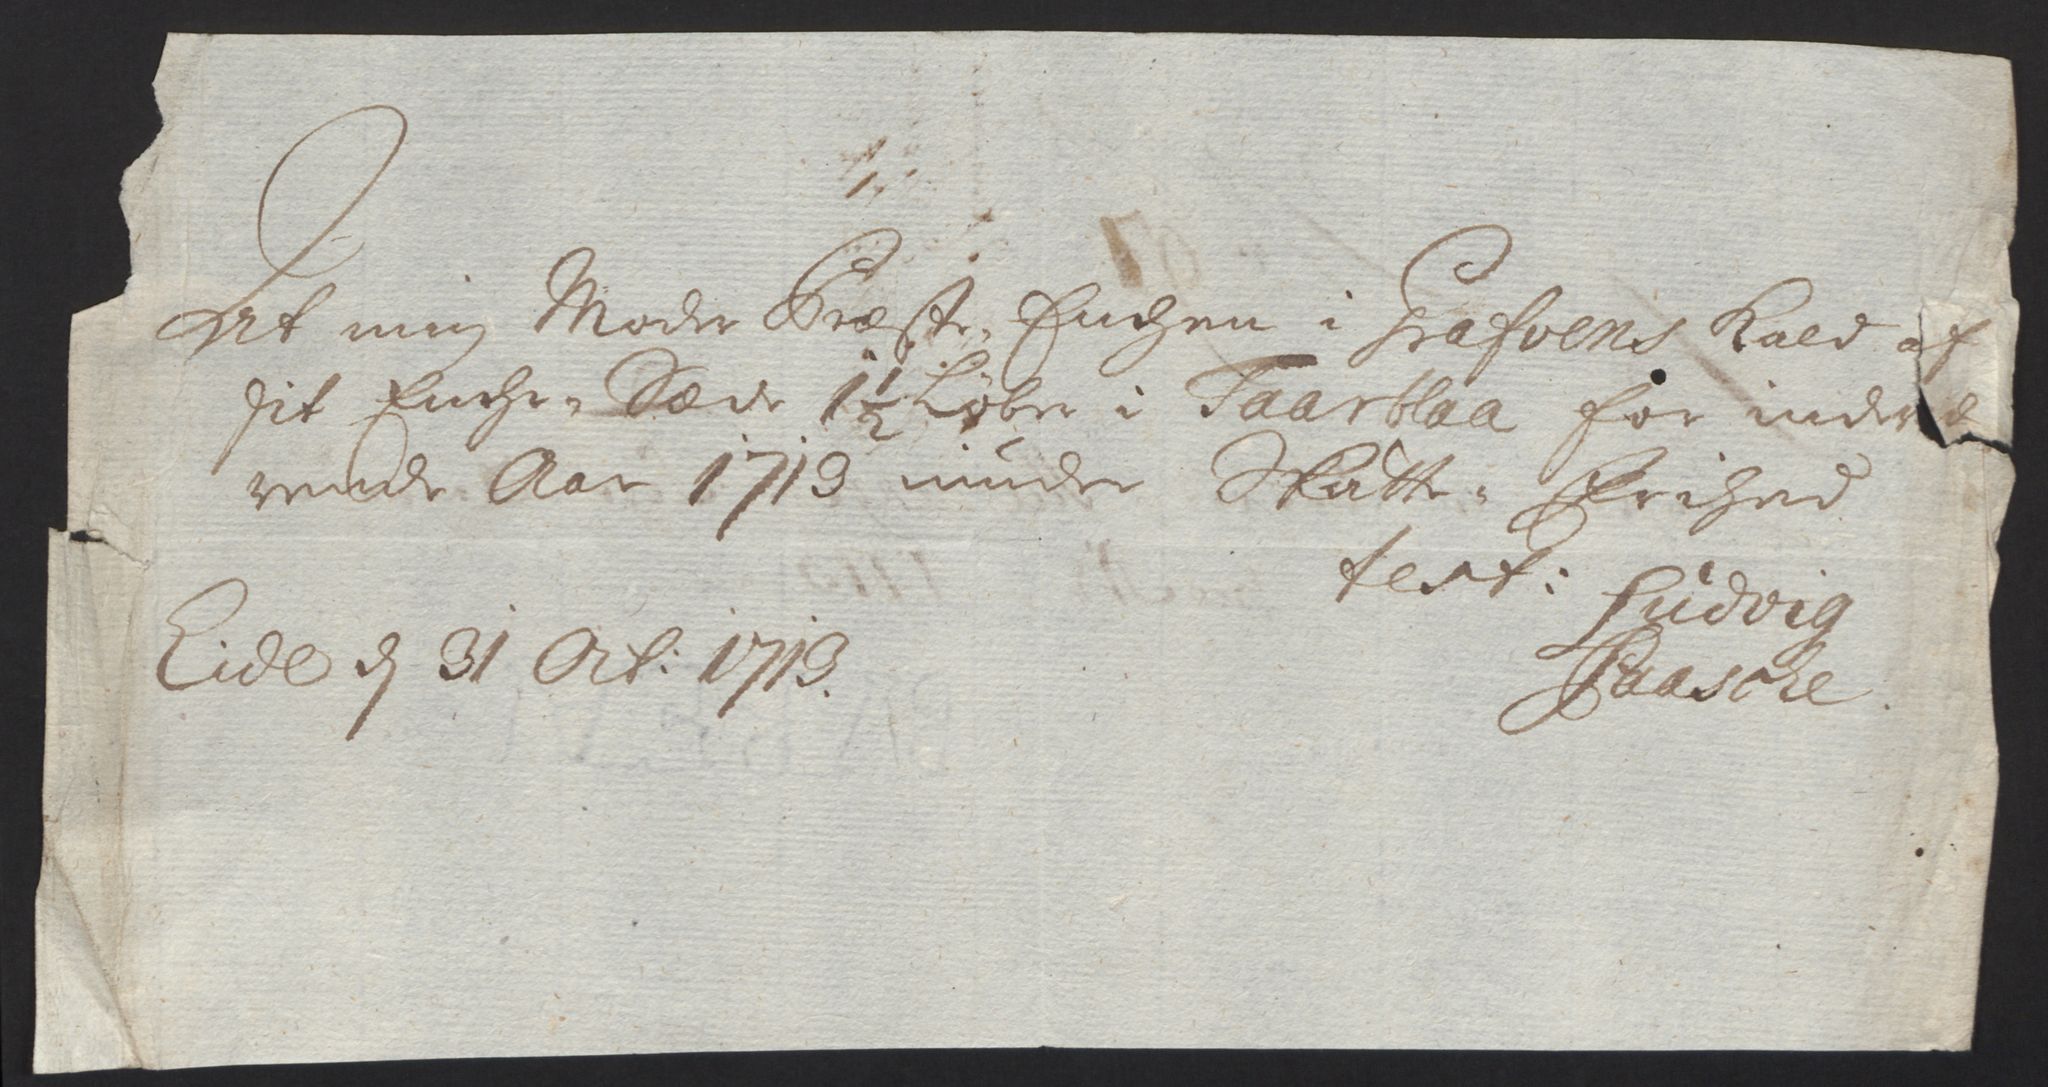 At min Moder Præste-Enchen i Grafvens Kald af
sit Enche-Sæde 1 1/2 Løber i Taarblaa for inde
rende Aar 1713 niuder Skatte-Frihed
test:
Ludvig
Paasche
Eide d 31 Oct: 1713.